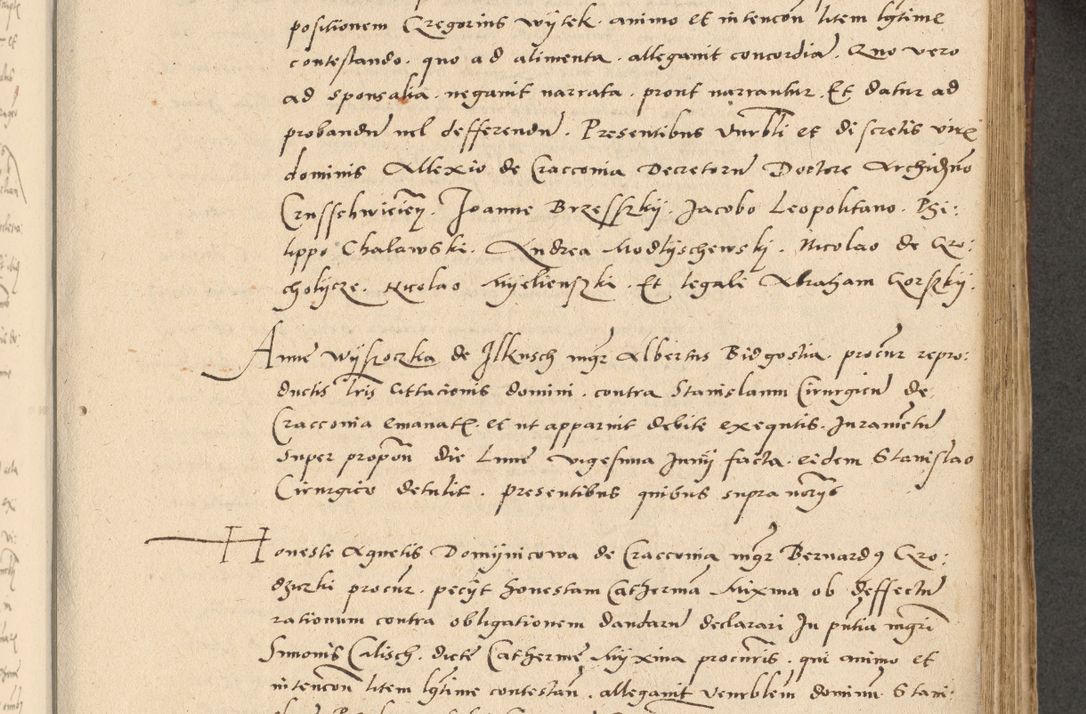 positionem Gregorius Wÿtek. animo et in tencon̄ litem lgṫime
contestando. quo ad alimenta. allegauit concordiā. Quo vero
ad sponsalia. negauit narrata. prout narrantur. Et datur ad
probandū uel defferendū. Presentibus Vnrbli et discretis viris
dominis Allexio de Cracouia Decretorū Doctore Archidno
Joanne Brzesszkij. Jacobo Leopolitano. Phi:
lippo Chalawski. Andrea Modlÿschewskj. Nicolao de Gro:
cholÿcze. Nicolao Mÿelienszki. Et legali Abraham Gorszkÿ.
Anne Wÿssoczka de Ilkusch mgr Albertus Bidgostia. procur repro:
ductis lris Cittacionis domini. contra Stanislaum Cirurgicū de
Cracouia emanat. et ut apparuit debite exequtis. Juramētū
super propon̄ die Lune vigesima Junÿ facta. eidem Stanislao
Cirurgico detulit. presentibus quibus supra
Honeste Agnetis Domÿnicowa de Cracouia mgr Bernardus Gro:
dziczki procur. pecÿt honestam Catherinā Mixina ob deffectū
rationum contra obligationem dandarū declarari In pn̄tia mgri
Simonis Calisch. dicte Catherine Mÿxina procuris. qui animo et
intencon̄ litem lgtime contestan̄. allegauit venrblem dominū Stani: